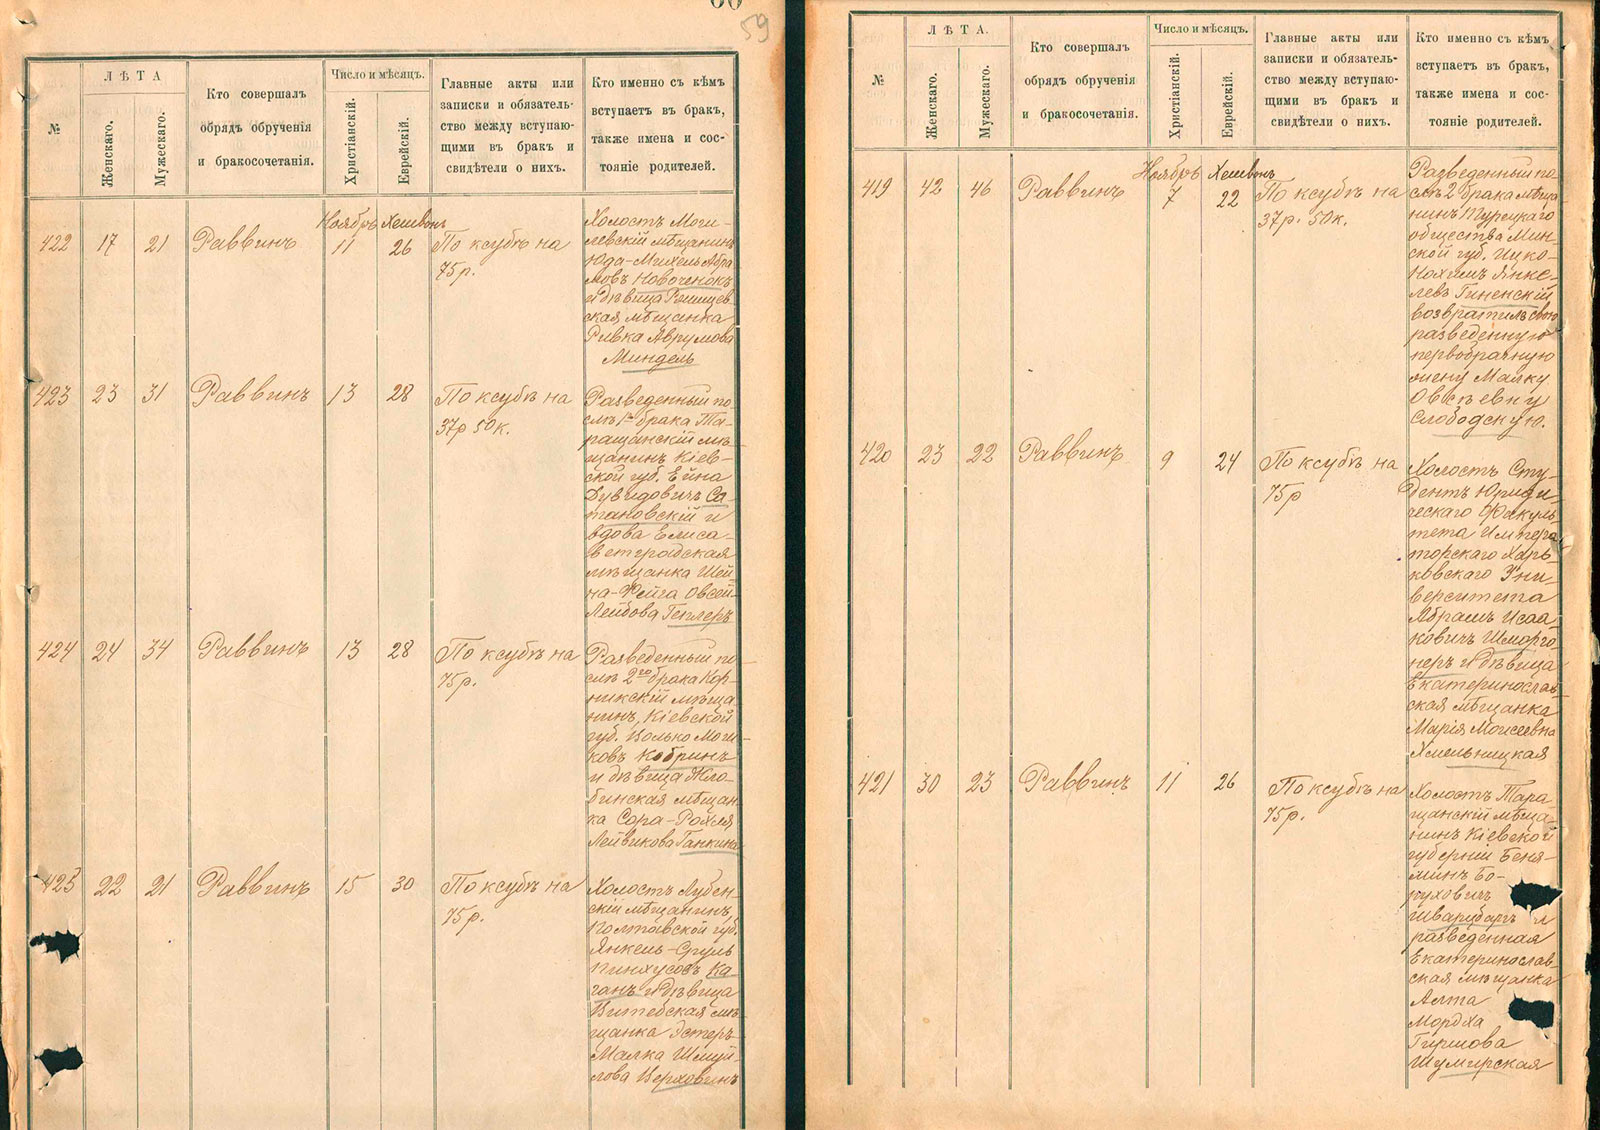 59
№
ЛѢТА
Женскаго.
Мужескаго.
Кто совершалъ
обрядъ обрученія
и бракосочетанія.
Число и мѣсяцъ.
Христіанскій.
Еврейскій.
Главные акты или
записки и обязатель-
ство между вступаю-
щими въ бракъ и
свидѣтели о нихъ.
Кто именно съ кѣмъ
вступаетъ въ бракъ,
также имена и сос-
тояніе родителей.
422 17 21 Раввинъ
Ноябрь Хешвонъ
11 26
По ксубѣ на
75р.
Холостъ Моги-
левскій мѣщанинъ
Юда-Михель Абра
мовъ Новоченокъ
и дѣвица Ржищев
ская мѣщанка
Ривка Аврумова
Миндель
423 23 31 Раввинъ 13 28
По ксубѣ на
37р 50к.
Разведенный по-
слѣ 1го брака Та-
ращанскій мѣ-
щанинъ Кіев-
ской губ. Ейна
Дувидовичъ Са-
тановскій и
вдова Елиса-
ветградская
мѣщанка Шей-
на-Фейга Овсей-
Лейбова Геплеръ
424 24 34 Раввинъ 13 28
По ксубѣ на
75р.
Разведенный по-
слѣ 2го брака Кор-
нинскій мѣща-
нинъ, Кіевской
губ. Волько Мош-
ковъ Кобринъ
и дѣвица Жло-
бинская мѣщан-
ка Сора-Рохля
Лейвикова Ганкина
425 22 21 Раввинъ 15 30
По ксубѣ на
75р.
Холостъ Лубен-
скій мѣщанинъ,
Полтавской губ.
Янкель-Сруль
Пинхусовъ Ка-
ганъ и дѣвица
Витебская мѣ-
щанка Эстеръ-
Малка Шмуй-
лова Верховинъ
№
ЛѢТА.
Женскаго.
Мужескаго.
Кто совершалъ
обрядъ обрученія
и бракосочетанія.
Число и мѣсяцъ.
Христіанскій.
Еврейскій.
Главные акты или
записки и обязатель-
ство между вступаю-
щими въ бракъ и
свидѣтели о нихъ.
Кто именно съ кѣмъ
вступаетъ въ бракъ,
также имена и сос-
тояніе родителей.
419 42 46 Раввинъ
Ноябрь Хешвонъ
7 22
По ксубѣ на
37р. 50к.
Разведенный по
слѣ 2 брака мѣща
нинъ Турецкаго
общества Мин-
ской губ. Ицко-
Нохимъ Янке-
левъ Гиненскій
возвратилъ свою
разведенную
первобрачную
жену Малку
Овсѣевну
Слободскую.
420 23 22 Раввинъ 9 24
По ксубѣ на
75р
Холостъ Сту-
дентъ Юриди-
ческаго Факуль-
тета Импера-
торскаго Харь-
ковскаго Уни-
верситета
Абрамъ Исаа-
ковичъ Шморго-
неръ и дѣвица
Екатеринослав-
ская мѣщанка
Марія Моисеевна
Хмельницкая
421 30 23 Раввинъ 11 26
По ксубѣ на
75р.
Холостъ Тара-
щанскій мѣща-
нинъ Кіевской
губерніи Беня-
минъ Бо-
руховичъ
Шварцбаргъ и
разведенная
Екатеринослав-
ская мѣщанка
Алта
Мордха
Гиршова
Шумирская